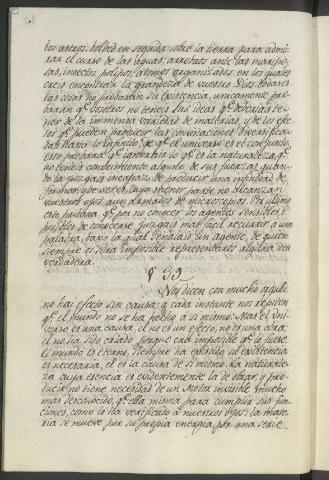 los astros, bolbed en seguida sobre la tierra para admi-
rar el curso de las aguas; arrobaos ante las maripo-
sas, insectos, polipos, atomos organizados en los quales
creis encontrar la grandeza de vuestro Dios: todas es-
tas cosas no probaran su existencia, unicamente pro-
baran qe vosotros no teneis las ideas qe deveriais te-
ner de la inmensa variedad de materias, y de los efec-
tos qe pueden producir las convinaciones diversifica-
das hasta lo infinito, de qe el universo es el conjunto,
esto probará qe ignorais lo qe es la naturaleza, qe
no teneis conocimiento alguno de sus fuerzas quan-
do la juzgais incapaz de producir una infinidad de
formas, y de seres, cuya menor parte no alcanzan
vuestros ojos aun armados de microscopios. Por ultimo
esto probará qe por no conocer los agentes sensibles o
posibles de conocerse juzgais mas facil recurrir a una
palabra, bajo la qual sentais un agente, de quien
siempre os será imposible representaros alguna idea
verdadera.
§ 39.
Nos dicen con mucho orgullo
no hai efecto sin causa: a cada instante nos repiten
qe el mundo no se ha fecho a si mismo. Mas el Uni-
verso es una causa, el no es un efecto, no es una obra,
el no ha sido criado porque era imposible qe lo fuese.
El mundo es eterno, siempre ha existido, su existencia
es necesaria, el es la causa de si mismo. La naturale-
za cuya esencia es evidentemente la de obrar, y pro-
ducir, no tiene necesidad de un Motor invisible mucho
mas desconocido, qe ella misma para cumplir sus fun-
ciones, como lo ha verificado a nuestros ojos: la mate-
ria se mueve por su propia energia, por una serie